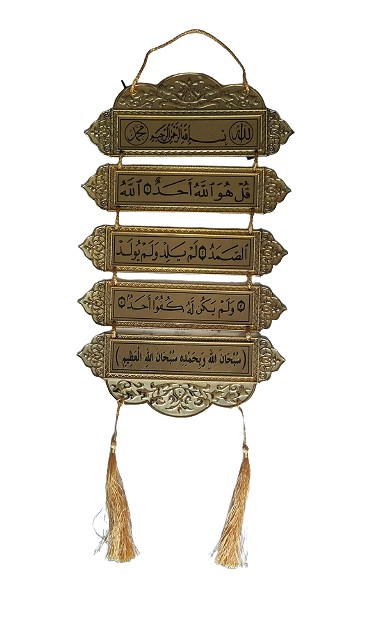 الله بسم الله الرحمن الرحيم محمد
قُلْ هُوَ اللَّهُ أَحَدٌ ۝ اللَّهُ
الصَّمَدُ ۝ لَمْ يَلِدْ وَلَمْ يُولَدْ
۝ وَلَمْ يَكُن لَّهُ كُفُوًا أَحَدٌ ۝
( سُبْحَانَ اللهِ وَبِحَمْدِهِ سُبْحَانَ اللهِ الْعَظِيمِ )